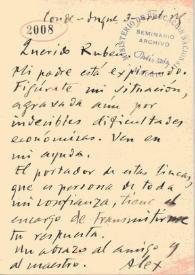 2008
MINISTERIO DE EDUCACION NACIONAL
SEMINARIO
ARCHIVO
Querido Rubén
Mi padre está expirando.
Figúrate mi situación,
agravada aun por
indecibles dificultades
económicas. Ven en
mi ayuda.
El portador de estas líneas,
que es persona de toda
mi confianza, tiene el
encargo de transmitirme
tu respuesta.
Un abrazo al amigo y
al maestro. Alex